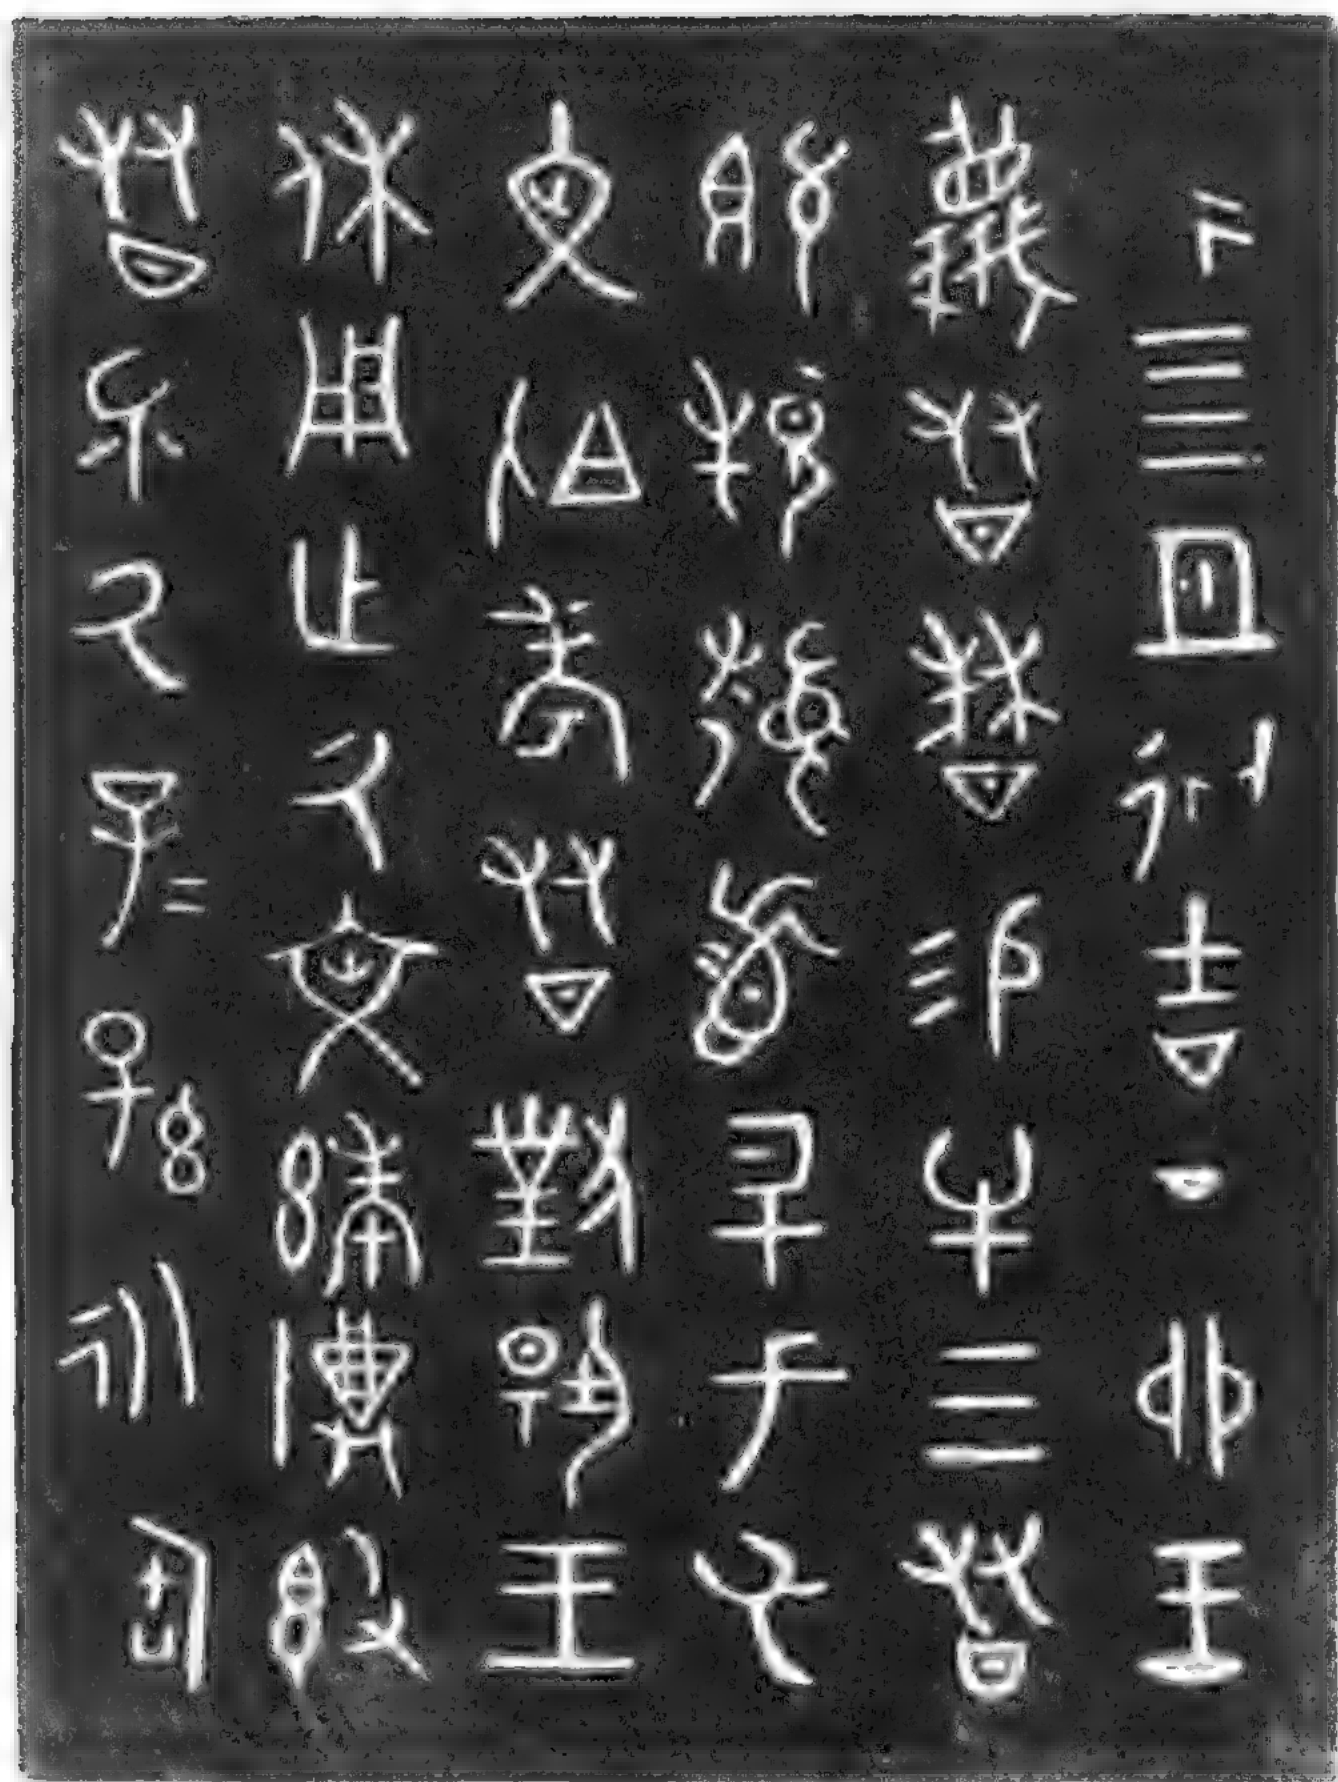 隹四月初吉丁卯王
蔑友曆易牛三友
既拜𩒨首升于氒
文且考友對揚王
休用乍氒文考尊𣪘
友眔氒子=孫永寶